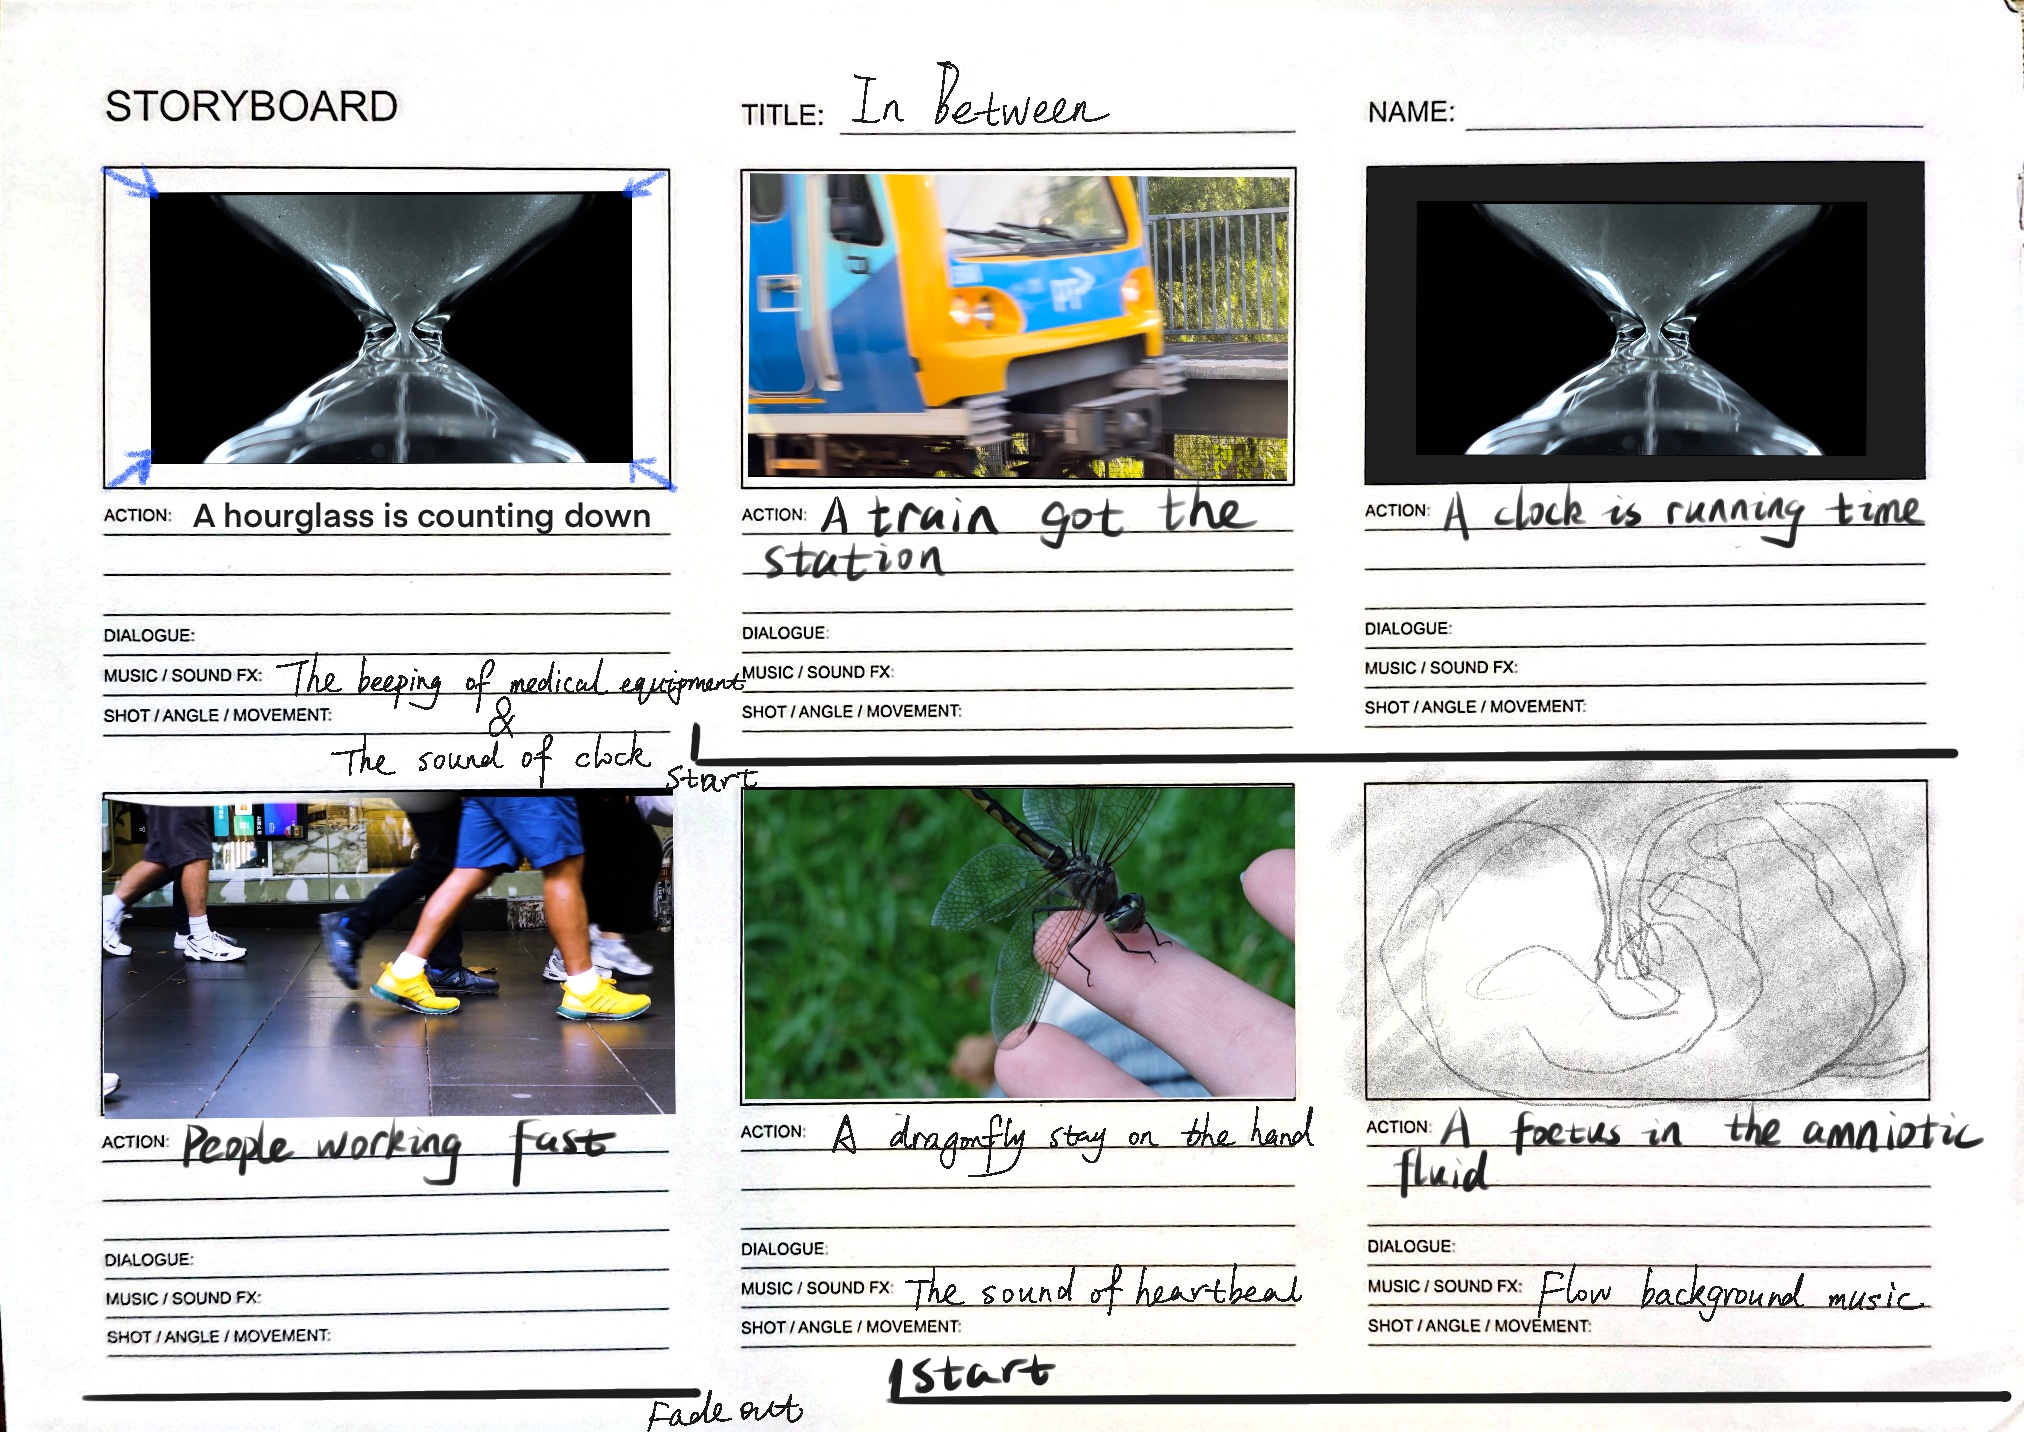 STORYBOARD
TITLE: In Between
NAME:
ACTION: A hourglass is counting down
DIALOGUE:
MUSIC / SOUND FX: The beeping of medical equipment
&
SHOT / ANGLE / MOVEMENT:
The sound of clock
ACTION: A train got the
station
DIALOGUE:
MUSIC / SOUND FX:
SHOT / ANGLE / MOVEMENT:
ACTION: A clock is running time
DIALOGUE:
MUSIC / SOUND FX:
SHOT / ANGLE / MOVEMENT:
start
ACTION: People working fast
DIALOGUE:
MUSIC / SOUND FX:
SHOT / ANGLE / MOVEMENT:
Fade out
ACTION: A dragonfly stay on the hand
DIALOGUE:
MUSIC / SOUND FX: The sound of heartbeat
SHOT / ANGLE / MOVEMENT:
start
ACTION: A foetus in the amniotic
fluid
DIALOGUE:
MUSIC / SOUND FX: Flow background music
SHOT / ANGLE / MOVEMENT: